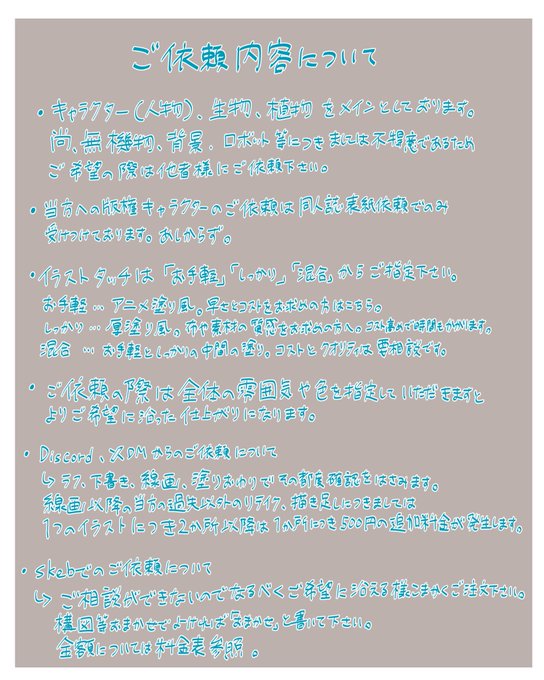 ご依頼内容について
・キャラクター(人物)、生物、植物 をメインとしております。
尚、無機物、背景、ロボット等につきましては不得意であるため
ご希望の際は他者様にご依頼下さい。
・当方への版権キャラクターのご依頼は同人誌表紙依頼でのみ
受けつけております。あしからず。
・イラストタッチは「お手軽」「しっかり」「混合」からご指定下さい。
お手軽 … アニメ塗り風。早さとコストをお求めの方はこちら。
しっかり … 厚塗り風。布や素材の質感をお求めの方へ。コスト高めで時間もかかります。
混合 … お手軽としっかりの中間の塗り。コストとクオリティは要相談です。
・ご依頼の際は全体の雰囲気や色を指定していただきますと
よりご希望に沿った仕上がりになります。
・Discord、XDMからのご依頼について
↳ ラフ、下書き、線画、塗りおわりでその都度確認をはさみます。
線画以降の当方の過失以外のリテイク、描き足しにつきましては
1つのイラストにつき2か所以降は1か所につき500円の追加料金が発生します。
・skebでのご依頼について
↳ ご相談ができないのでなるべくご希望に沿える様こまかくご注文下さい。
構図等おまかせでよければ「おまかせ」と書いて下さい。
金額については料金表参照。